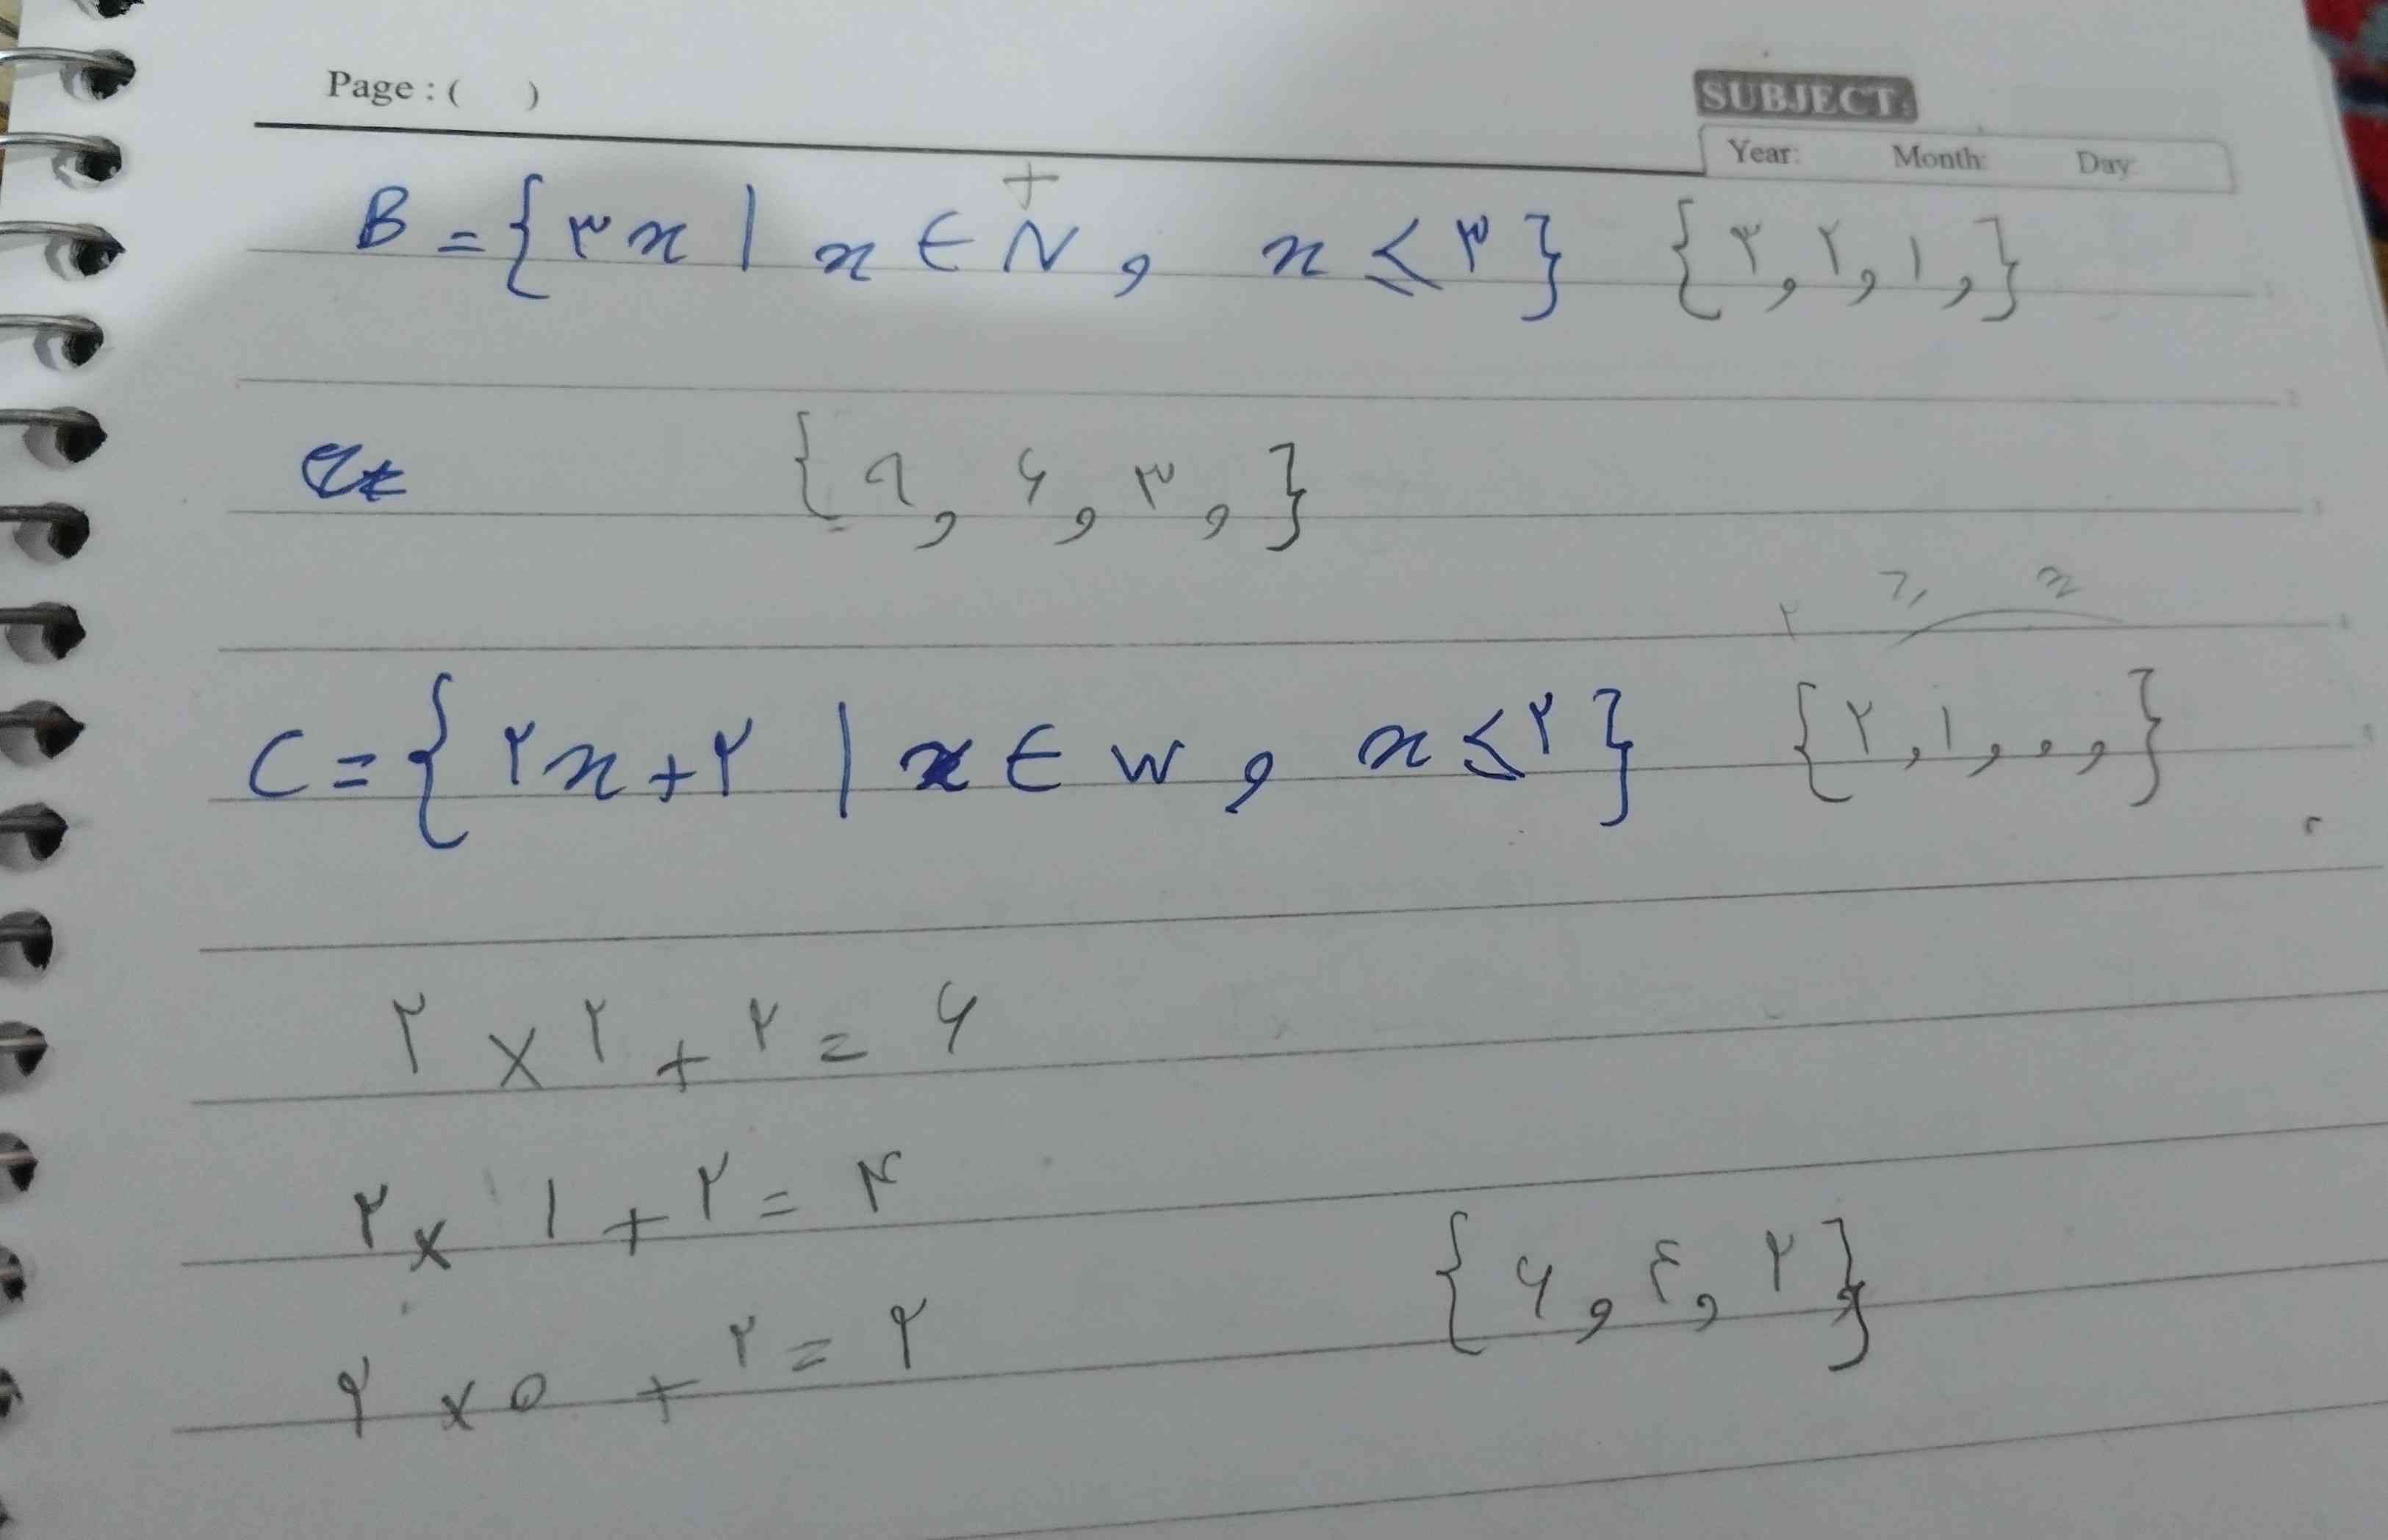 Page : ( )
SUBJECT:
Year: Month: Day:
+
B = { ۳x | x ∈ N , x ≤ ۳ } { ۳ , ۲ , ۱ , }
{ ۹ , ۶ , ۳ , }
۲ ≥ x
C = { ۲x + ۲ | x ∈ W , x ≤ ۲ } { ۲ , ۱ , ۰ , }
۲ × ۲ + ۲ = ۶
۲ × ۱ + ۲ = ۴
۲ × 0 + ۲ = ۲ { ۶ , ٤ , ۲ }